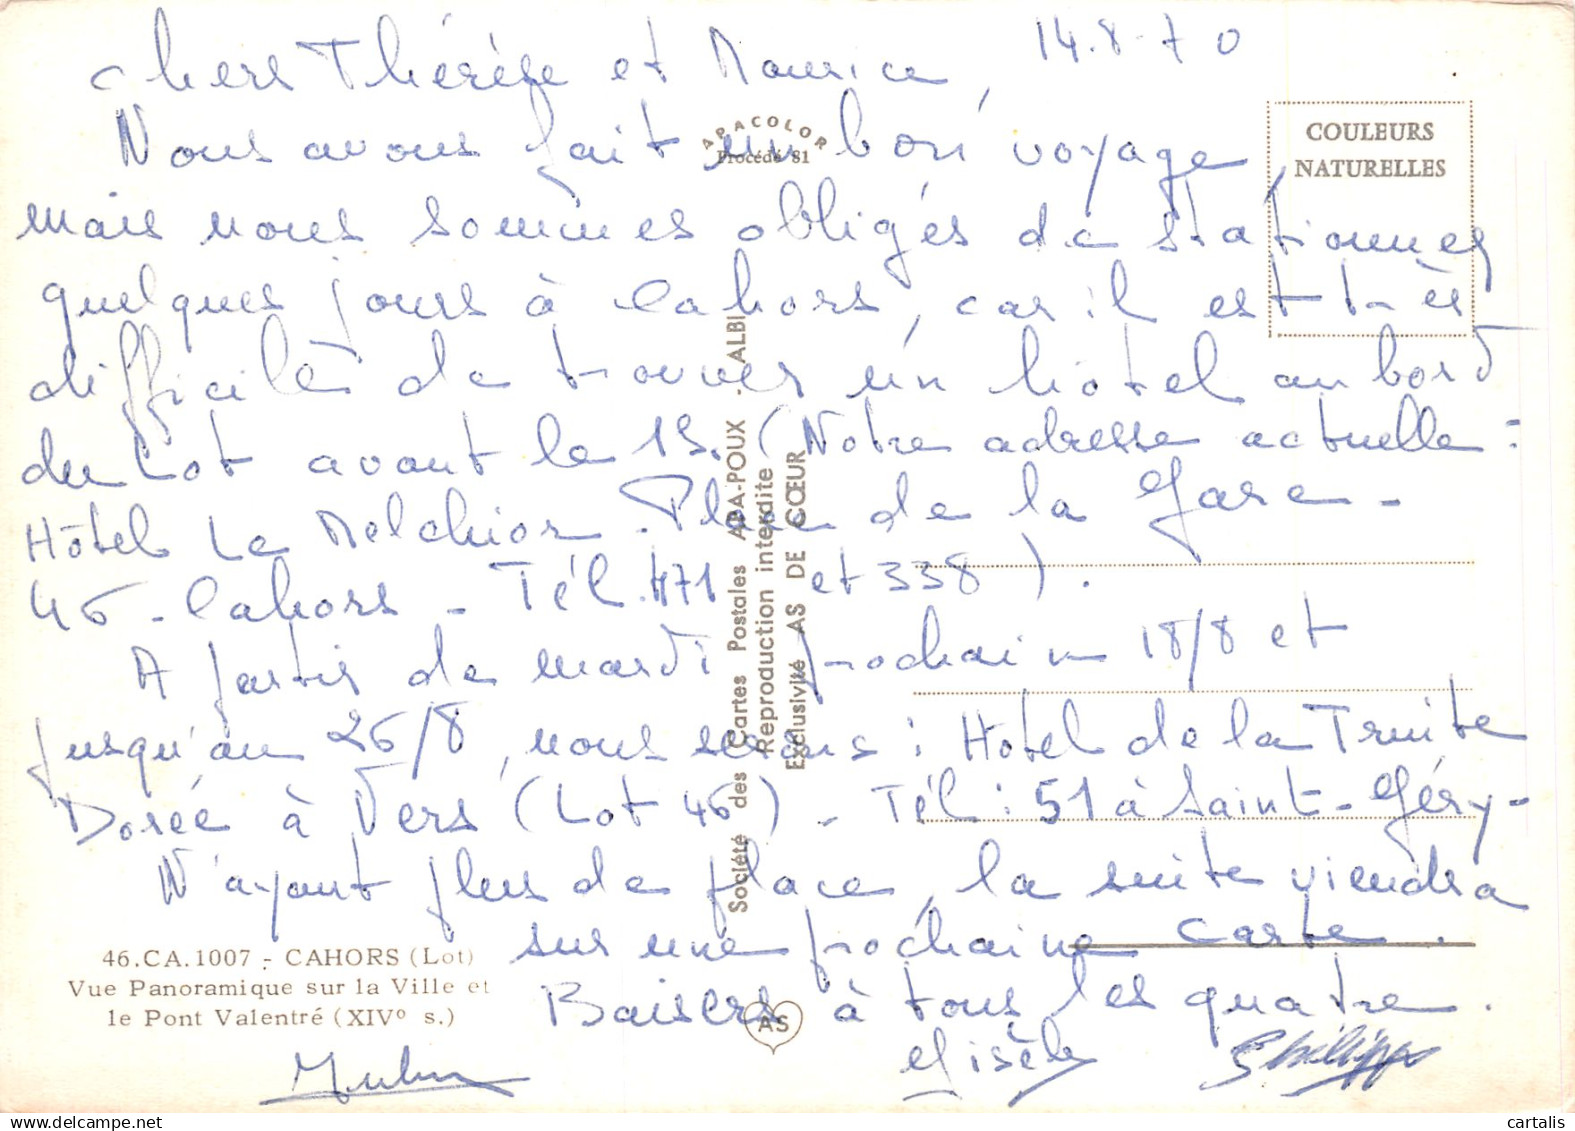 14.8.70
Chers Thérèse et Maurice,
Nous avons fait un bon voyage,
mais nous sommes obligés de stationner
quelques jours à Cahors, car il est très
difficile de trouver un hôtel au bord
du Lot avant le 15. (Notre adresse actuelle :
Hôtel Le Melchior. Place de la Gare -
46 - Cahors - Tél. 471 et 338).
A partir de mardi prochain 18/8 et
jusqu'au 26/8, nous serons : Hôtel de la Truite
Dorée à Vers (Lot 46) - Tél : 51 à Saint-Géry -
N'ayant plus de place, la suite viendra
sur une prochaine carte.
Baisers à tous les quatre.
Gisèle Philippe
APACOLOR
Procédé 81
COULEURS
NATURELLES
Société des Cartes Postales APA-POUX - ALBI
Reproduction interdite
Exclusivité AS DE CŒUR
46.CA.1007 - CAHORS (Lot)
Vue Panoramique sur la Ville et
le Pont Valentré (XIVº s.)
AS
delcampe.net
cartalis